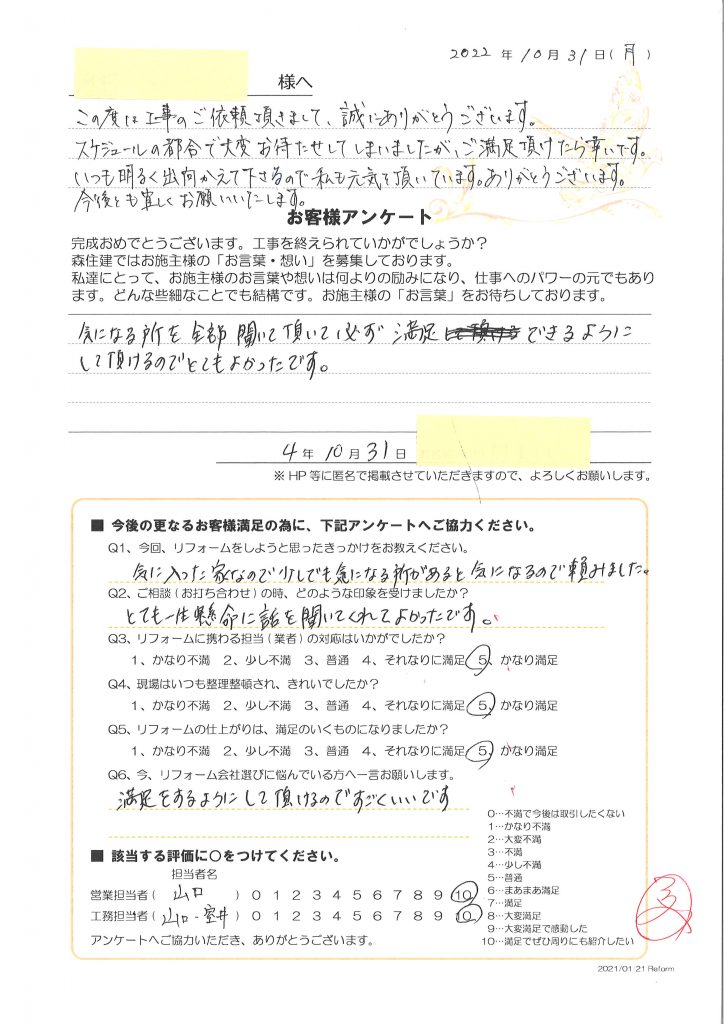 2022 年 10 月 31 日(月)
様へ
この度は工事のご依頼頂きまして、誠にありがとうございます。
スケジュールの都合で大変お待たせしてしまいましたが、ご満足頂けたら幸いです。
いつも明るく出向かえて下さるので私も元気を頂いています。ありがとうございます。
今後とも宜しくお願いいたします。
お客様アンケート
完成おめでとうございます。工事を終えられていかがでしょうか？
森住建ではお施主様の「お言葉・想い」を募集しております。
私達にとって、お施主様のお言葉や想いは何よりの励みになり、仕事へのパワーの元でもあり
ます。どんな些細なことでも結構です。お施主様の「お言葉」をお待ちしております。
気になる所を全部聞いて頂いて必ず満足できるように
して頂けるのでとてもよかったです。
4 年 10 月 31 日
※HP等に匿名で掲載させていただきますので、よろしくお願いします。
■ 今後の更なるお客様満足の為に、下記アンケートへご協力ください。
Q1、今回、リフォームをしようと思ったきっかけをお教えください。
気に入った家なので少しでも気になる所があると気になるので頼みました。
Q2、ご相談（お打ち合わせ）の時、どのような印象を受けましたか？
とても一生懸命に話を聞いてくれてよかったです。
Q3、リフォームに携わる担当(業者)の対応はいかがでしたか？
1、かなり不満 2、少し不満 3、普通 4、それなりに満足 5、かなり満足
Q4、現場はいつも整理整頓され、きれいでしたか？
1、かなり不満 2、少し不満 3、普通 4、それなりに満足 5、かなり満足
Q5、リフォームの仕上がりは、満足のいくものになりましたか？
1、かなり不満 2、少し不満 3、普通 4、それなりに満足 5、かなり満足
Q6、今、リフォーム会社選びに悩んでいる方へ一言お願いします。
満足をするようにして頂けるのですごくいいです
0…不満で今後は取引したくない
1…かなり不満
2…大変不満
3…不満
4…少し不満
5…普通
6…まあまあ満足
7…満足
8…大変満足
9…大変満足で感動した
10…満足でぜひ周りにも紹介したい
■ 該当する評価に○をつけてください。
担当者名
営業担当者( 山口 ) 0 1 2 3 4 5 6 7 8 9 10
工務担当者( 山口・室井 ) 0 1 2 3 4 5 6 7 8 9 10
アンケートへご協力いただき、ありがとうございます。
2021/01 21 Reform